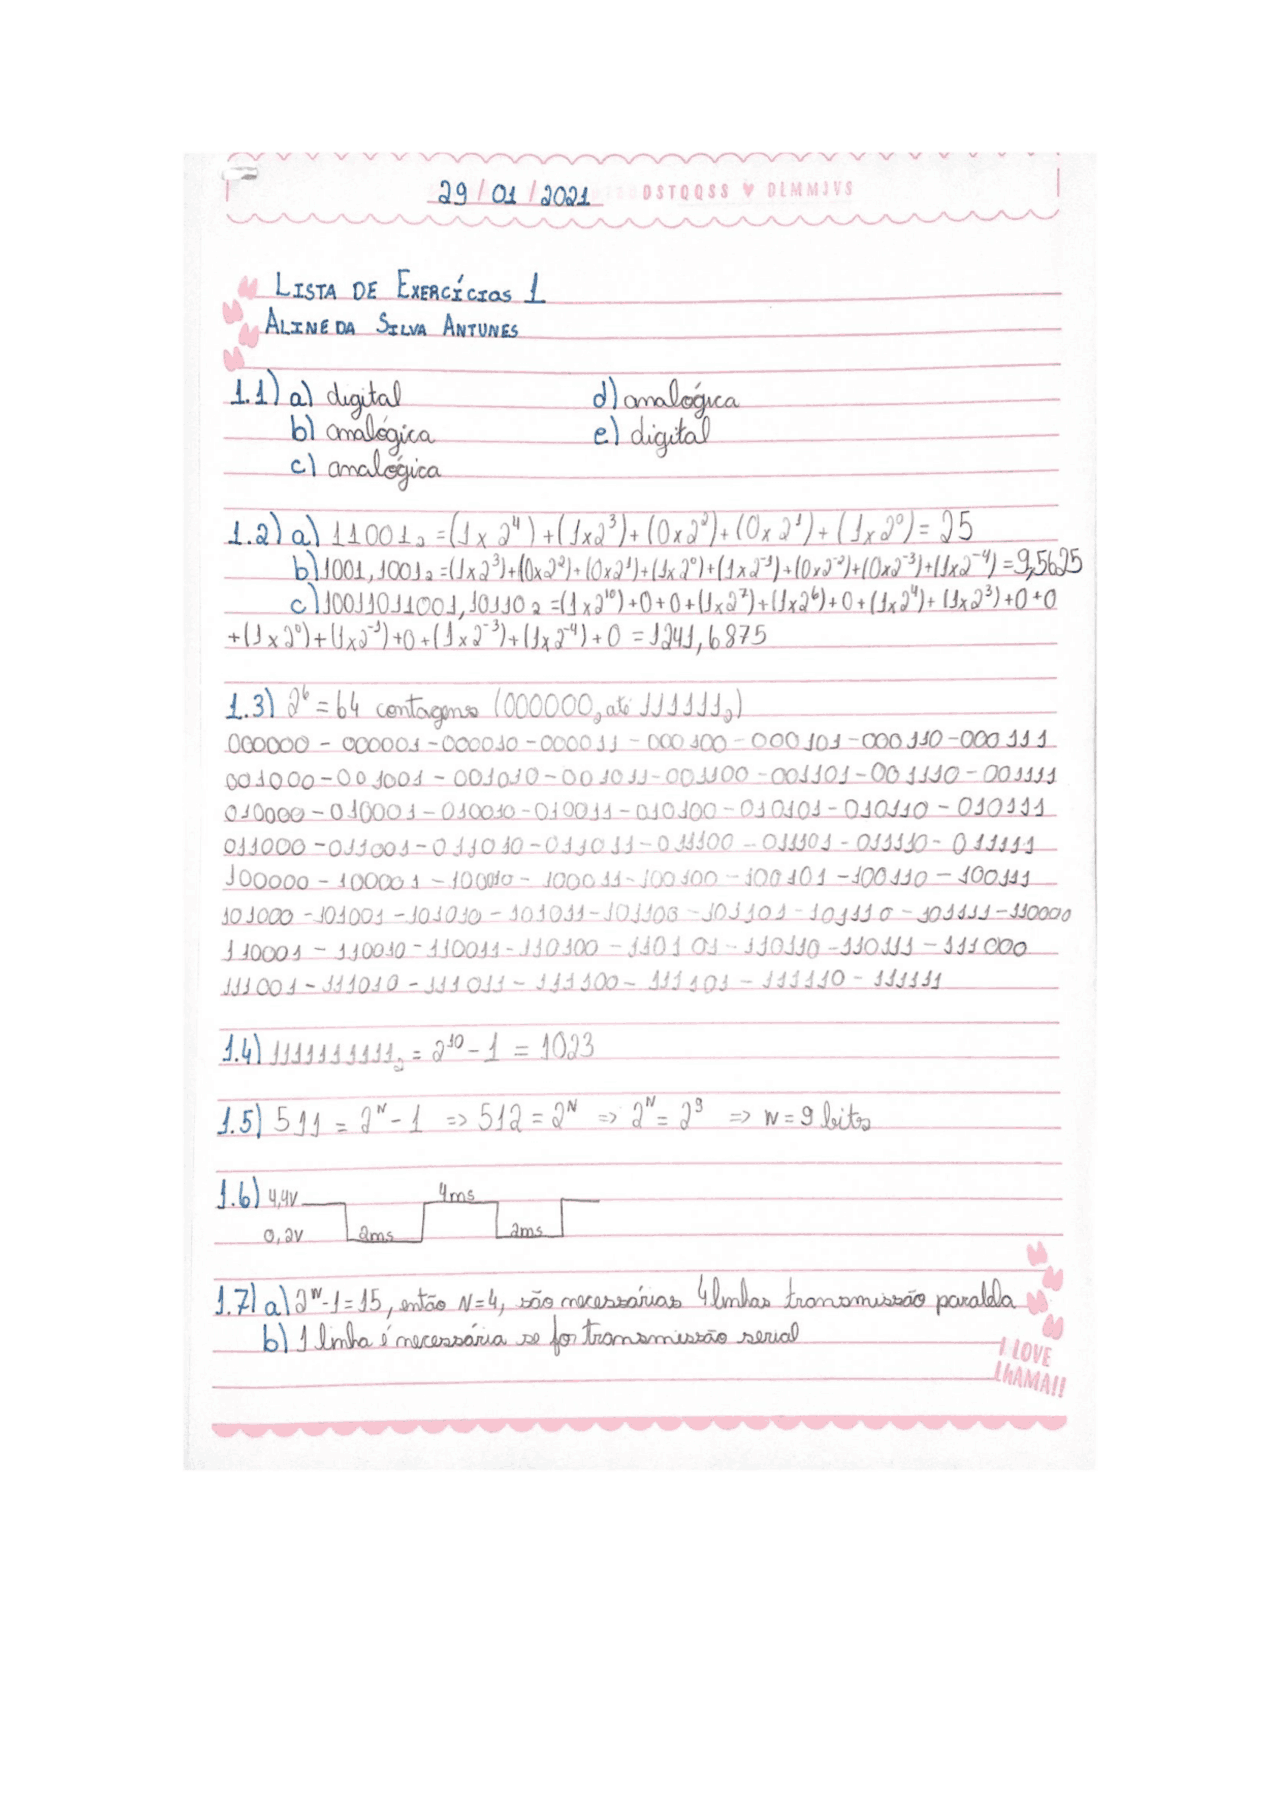 29/01/2021 DSTQQSS ♥ DLMMJVS
LISTA DE EXERCÍCIOS 1
ALINE DA SILVA ANTUNES
1.1) a) digital d) analógica
b) analógica e) digital
c) analógica
1.2) a) 11001₂ = (1x2⁴) + (1x2³) + (0x2²) + (0x2¹) + (1x2⁰) = 25
b) 1001,1001₂ = (1x2³)+(0x2²)+(0x2¹)+(1x2⁰)+(1x2⁻¹)+(0x2⁻²)+(0x2⁻³)+(1x2⁻⁴) = 9,5625
c) 10011011001,10110₂ = (1x2¹⁰)+0+0+(1x2⁷)+(1x2⁶)+0+(1x2⁴)+(1x2³)+0+0
+(1x2⁰)+(1x2⁻¹)+0+(1x2⁻³)+(1x2⁻⁴)+0 = 1241,6875
1.3) 2⁶ = 64 contagens (000000₂ até 111111₂)
000000 - 000001 - 000010 - 000011 - 000100 - 000101 - 000110 - 000111
001000 - 001001 - 001010 - 001011 - 001100 - 001101 - 001110 - 001111
010000 - 010001 - 010010 - 010011 - 010100 - 010101 - 010110 - 010111
011000 - 011001 - 011010 - 011011 - 011100 - 011101 - 011110 - 011111
100000 - 100001 - 100010 - 100011 - 100100 - 100101 - 100110 - 100111
101000 - 101001 - 101010 - 101011 - 101100 - 101101 - 101110 - 101111 - 110000
110001 - 110010 - 110011 - 110100 - 110101 - 110110 - 110111 - 111000
111001 - 111010 - 111011 - 111100 - 111101 - 111110 - 111111
1.4) 1111111111₂ = 2¹⁰ - 1 = 1023
1.5) 511 = 2ᴺ - 1 => 512 = 2ᴺ => 2ᴺ = 2⁹ => N = 9 bits
1.6) 4,4V 4ms
0,2V 2ms 2ms
1.7) a) 2ᴺ-1=15, então N=4, são necessárias 4 linhas transmissão paralela
b) 1 linha é necessária se for transmissão serial
I LOVE
LhAMA!!